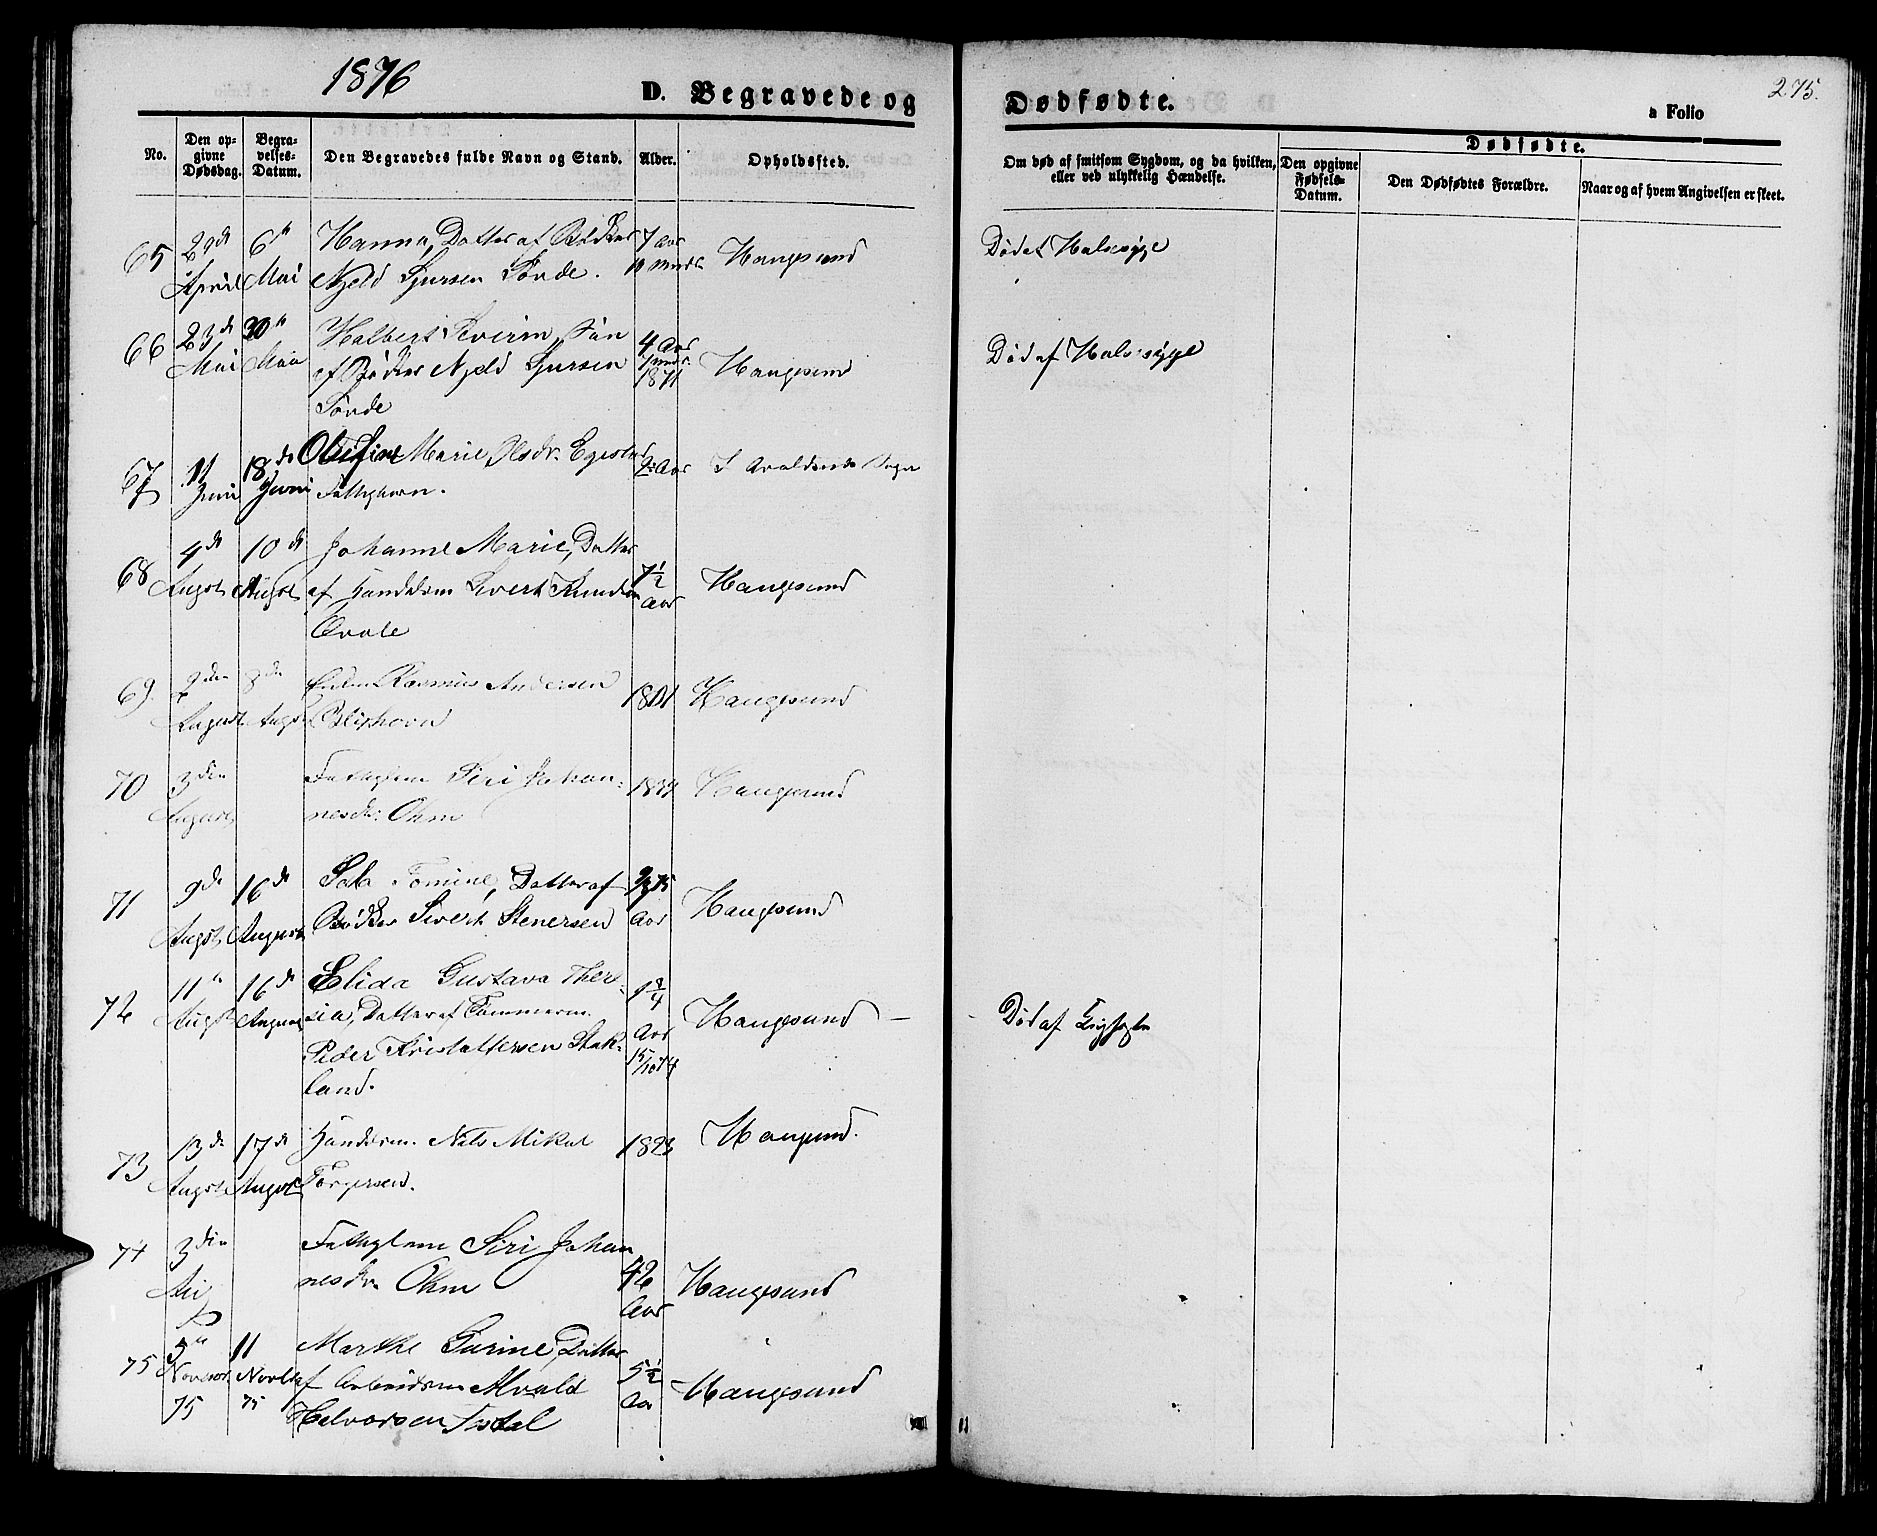 1876
D. Begravede og
Dødfødte.
275.
a Folio
No.
Den opgivne Dødsdag.
Begravelses-Datum.
Den Begravedes fulde Navn og Stand.
Alder.
Opholdssted.
Om død af smitsom Sygdom, og da hvilken, eller ved ulykkelig Hændelse.
Dødfødte.
Den opgivne Fødsels-Datum.
Den Dødfødtes Forældre.
Naar og af hvem Angivelsen er skeet.
65
April
6
Mai
Hanna, Datter af Bødker
Njeld Sjursen Tonde.
7 Aar
Haugesund
Død af Halssyge
66
23de
Mai
30
Mai
Halbert Severin, Søn
af Bødker Njeld Sjursen
Tonde
4 Aar
1871
Haugesund
Død af Halssyge
67
11
Juni
18de
Juni
Marie Olsdr.
Aar
I Avaldsnes Sogn
68
4de
Augst
10de
Augst
Johanne Marie, Datter
af Handelsm Sivert Knudsen
Qvale
7½
Aar
Haugesund
69.
2den
August
8de
Augst
Rasmus Andersen
1801
Haugesund
70
3die
August
Siri Johan-
nesdr. Ohm
Haugesund
71
9de
Augst
16de
August
Tomine, Datter af
Bødker Sivert Stenersen
Aar
Haugesund
72
11
Augst
16de
August
Elida Gustava There-
sia, Datter af Tømmerm.
Peder Kristoffersen Stak-
land.
1¾
Aar
15/10 74
Haugesund
Død af
73
13de
Augst
17de
Augst
Handelsm. Nils Mikal
Torgersen.
Haugesund.
74
3die
Siri Johan
nesdr. Ohm
42
Aar
Haugesund
75
5
75
11
75
Marthe Gurine, Datter
af Arbeidsm
Halvorsen
5½
Aar
Haugesund